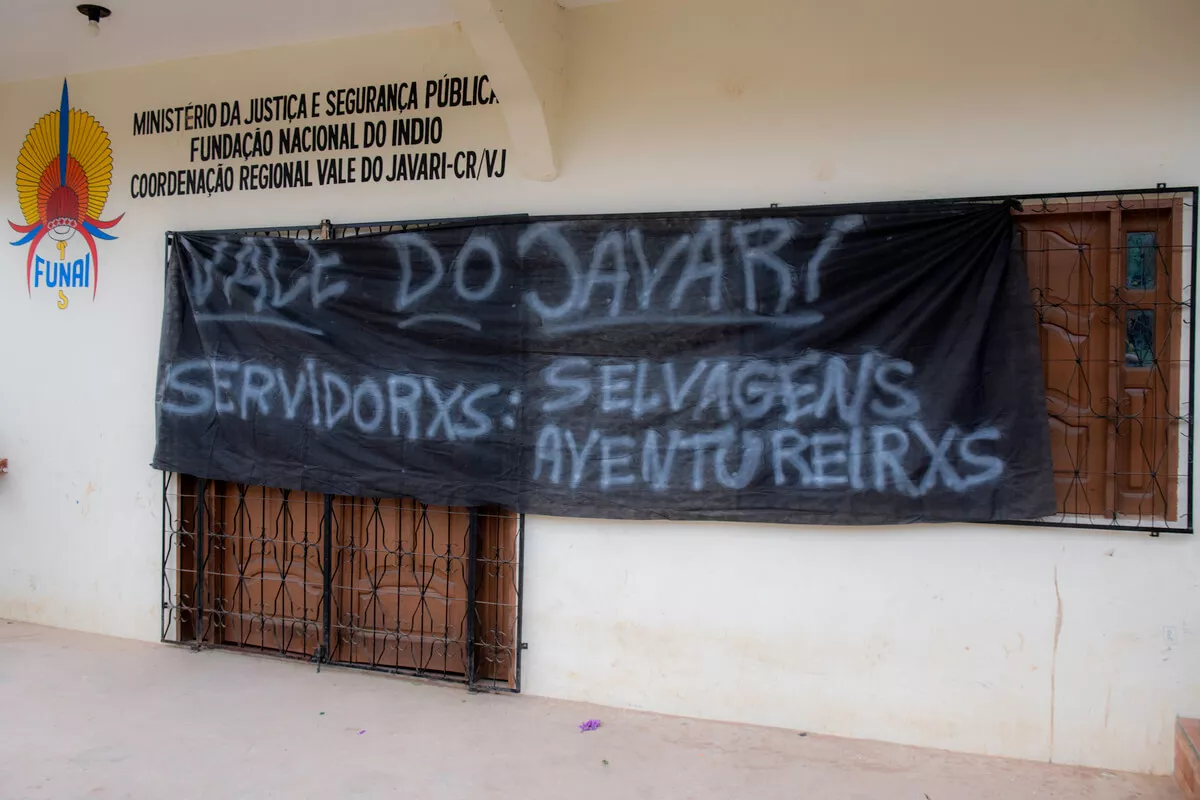 MINISTÉRIO DA JUSTIÇA E SEGURANÇA PÚBLICA
FUNDAÇÃO NACIONAL DO INDIO
COORDENAÇÃO REGIONAL VALE DO JAVARI-CR/VJ
FUNAI
VALE DO JAVARÍ
SERVIDORXS: SELVAGENS
AVENTUREIRXS